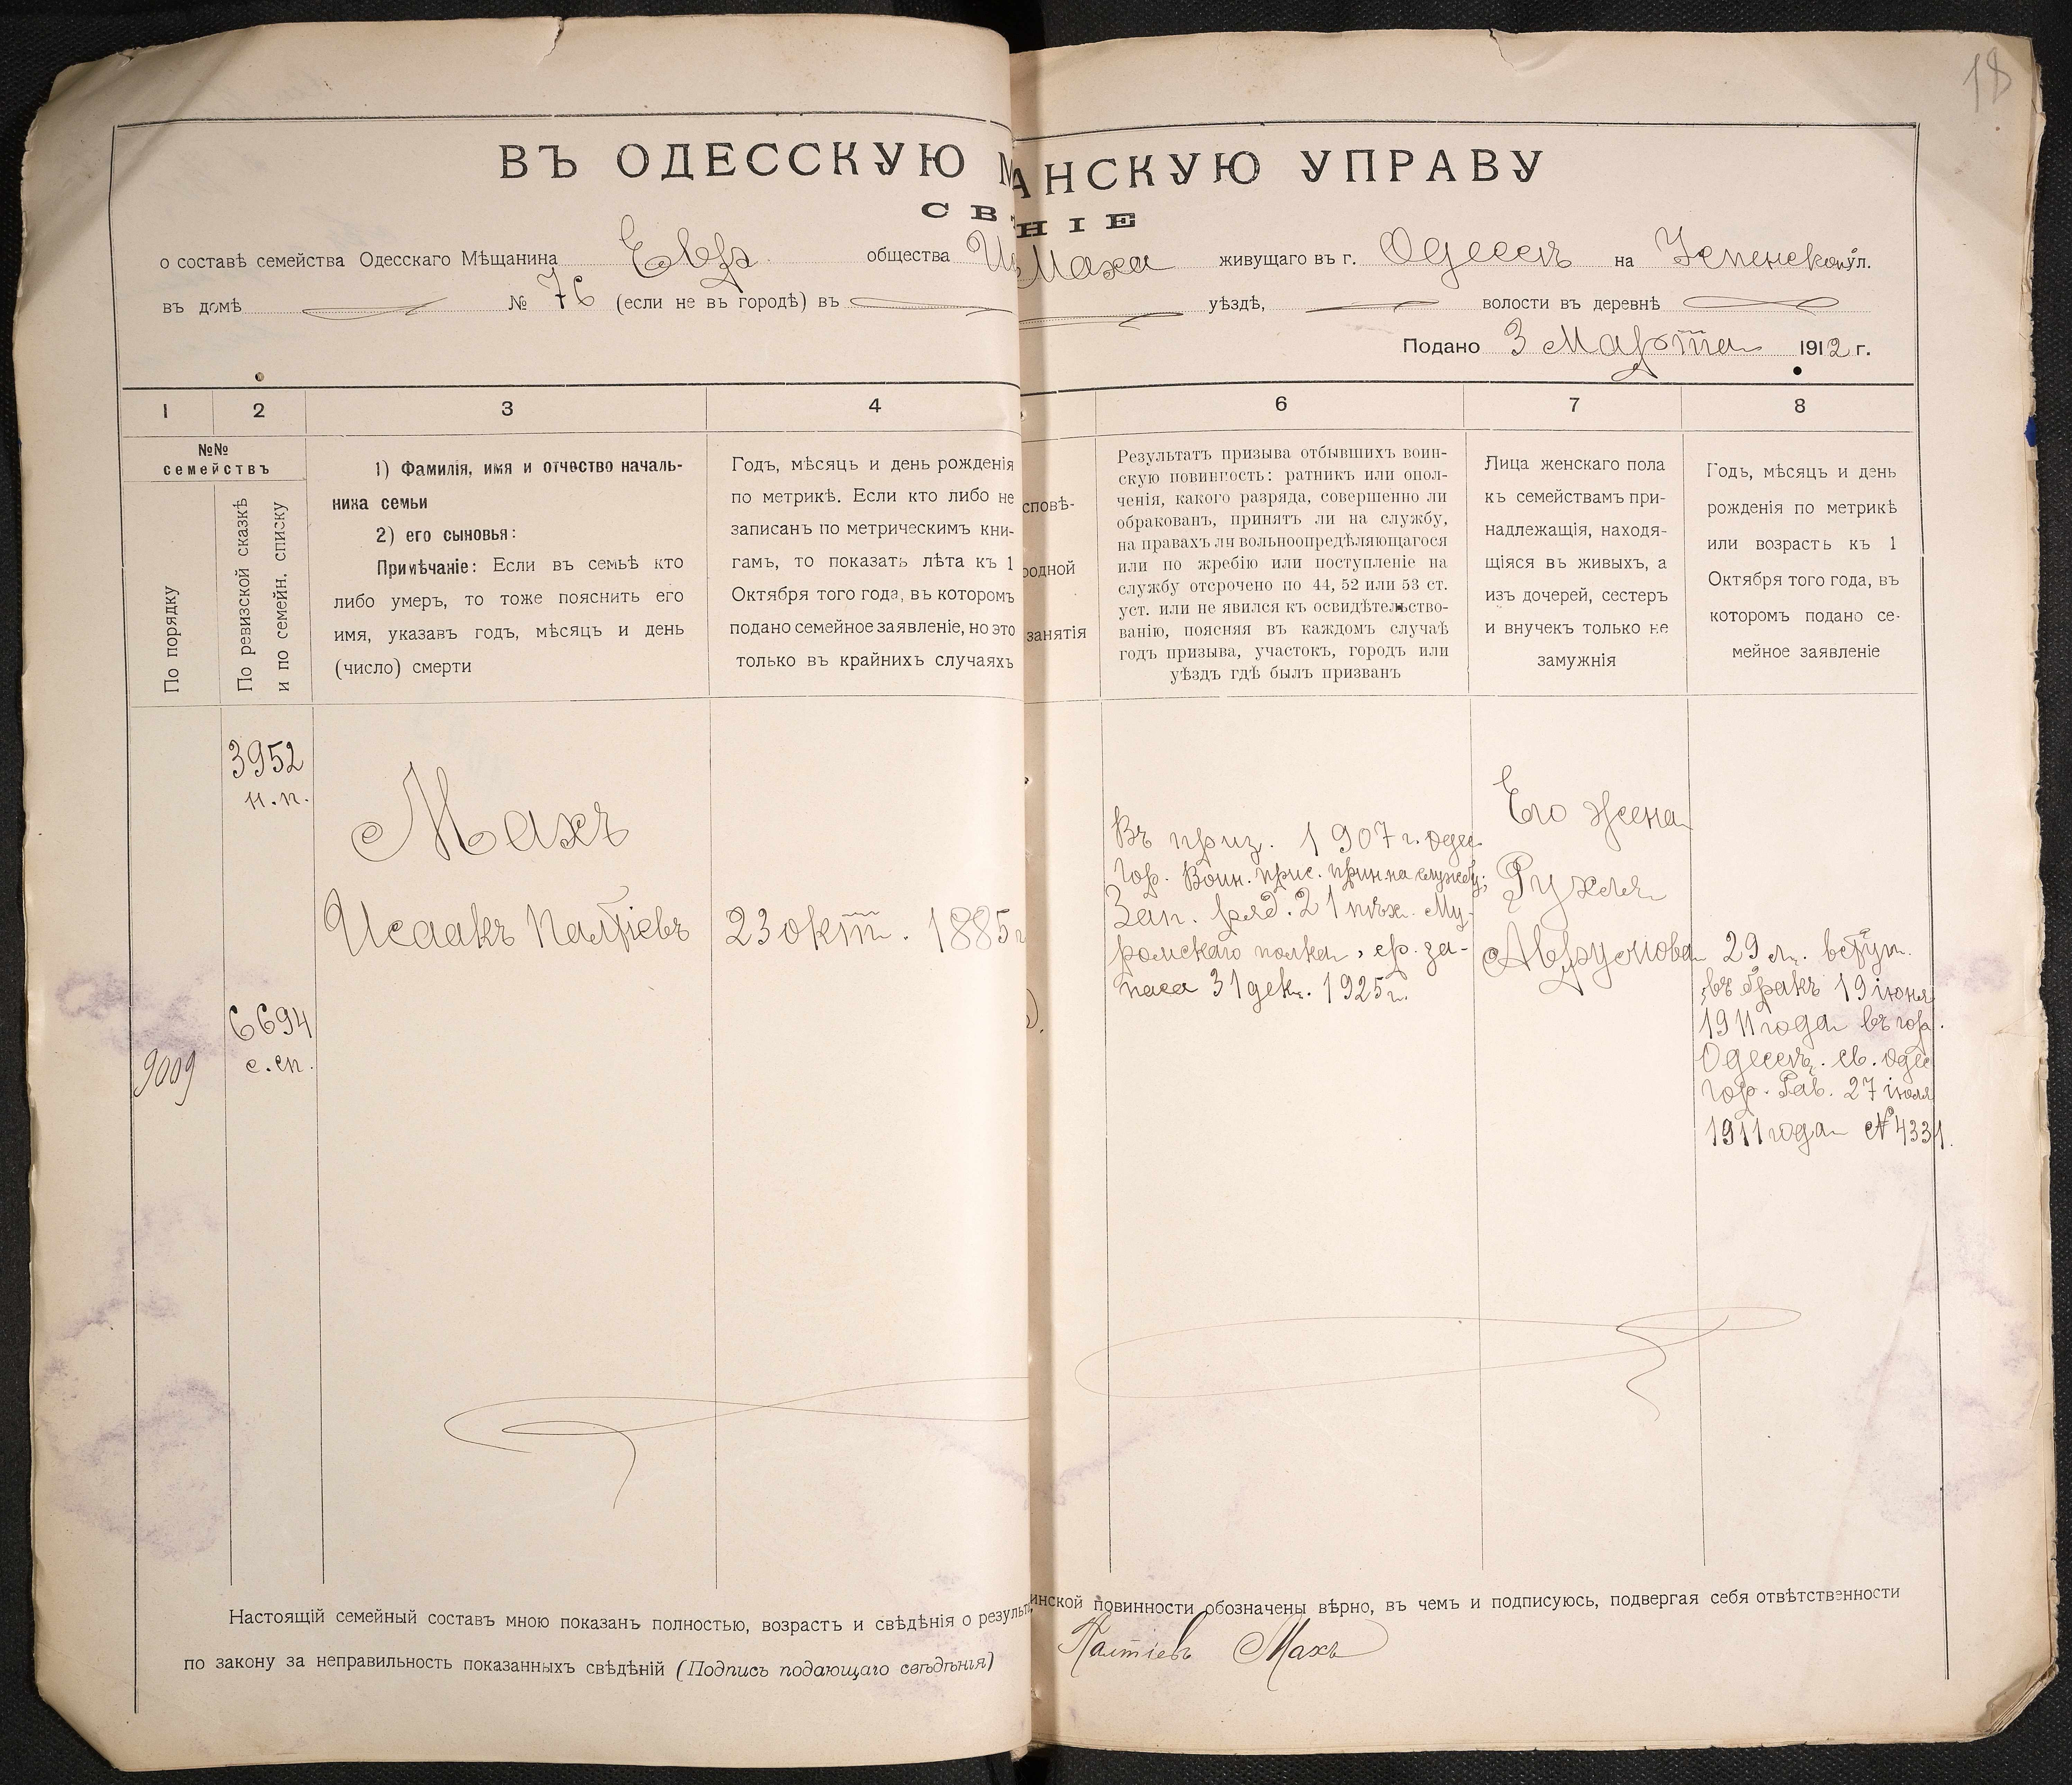 18
ВЪ ОДЕССКУЮ М АНСКУЮ УПРАВУ
СВ НІЕ
о составѣ семейства Одесскаго Мѣщанина Евр. общества Маха живущаго въ г. Одессѣ на Успенской ул.
въ домѣ № 76 (если не въ городѣ) въ уѣздѣ, волости въ деревнѣ
Подано 3 Марта 1912 г.
1 2 3 4 6 7 8
№№
семействъ
По порядку
По ревизской сказкѣ
и по семейн. списку
1) Фамилія, имя и отчество началь-
ника семьи
2) его сыновья:
Примѣчаніе: Если въ семьѣ кто
либо умеръ, то тоже пояснить его
имя, указавъ годъ, мѣсяцъ и день
(число) смерти
Годъ, мѣсяцъ и день рожденія
по метрикѣ. Если кто либо не
записанъ по метрическимъ кни-
гамъ, то показать лѣта къ 1
Октября того года, въ которомъ
подано семейное заявленіе, но это
только въ крайнихъ случаяхъ
сповѣ-
родной
занятія
Результатъ призыва отбывшихъ воин-
скую повинность: ратникъ или опол-
ченія, какого разряда, совершенно ли
обракованъ, принятъ ли на службу,
на правахъ ли вольноопредѣляющагося
или по жребію или поступленіе на
службу отсрочено по 44, 52 или 53 ст.
уст. или не явился къ освидѣтельство-
ванію, поясняя въ каждомъ случаѣ
годъ призыва, участокъ, городъ или
уѣздъ гдѣ былъ призванъ
Лица женскаго пола
къ семействамъ при-
надлежащія, находя-
щіяся въ живыхъ, а
изъ дочерей, сестеръ
и внучекъ только не
замужнія
Годъ, мѣсяцъ и день
рожденія по метрикѣ
или возрастъ къ 1
Октября того года, въ
которомъ подано се-
мейное заявленіе
3952
н.п.
6694
с.сп.
9009
Махъ
Исаакъ Палтіевъ
23 окт. 1885 г
Въ приз. 1907 г. одес
гор. Воин. прис. прин. на службу;
Зап. ряд. 21 пѣх. Му-
ромскаго полка, ср. за-
паса 31 дек. 1925 г.
Его жена
Рухля
Аврумова
29 л. вступ.
въ бракъ 19 іюня
1911 года въ гор.
Одессѣ. св. одес
гор. Рав. 27 іюля
1911 года № 4331.
Настоящій семейный составъ мною показанъ полностью, возрастъ и свѣдѣнія о резуль инской повинности обозначены вѣрно, въ чемъ и подписуюсь, подвергая себя отвѣтственности
по закону за неправильность показанныхъ свѣдѣній (Подпись подающаго свѣдѣнія) Палтіевъ Махъ